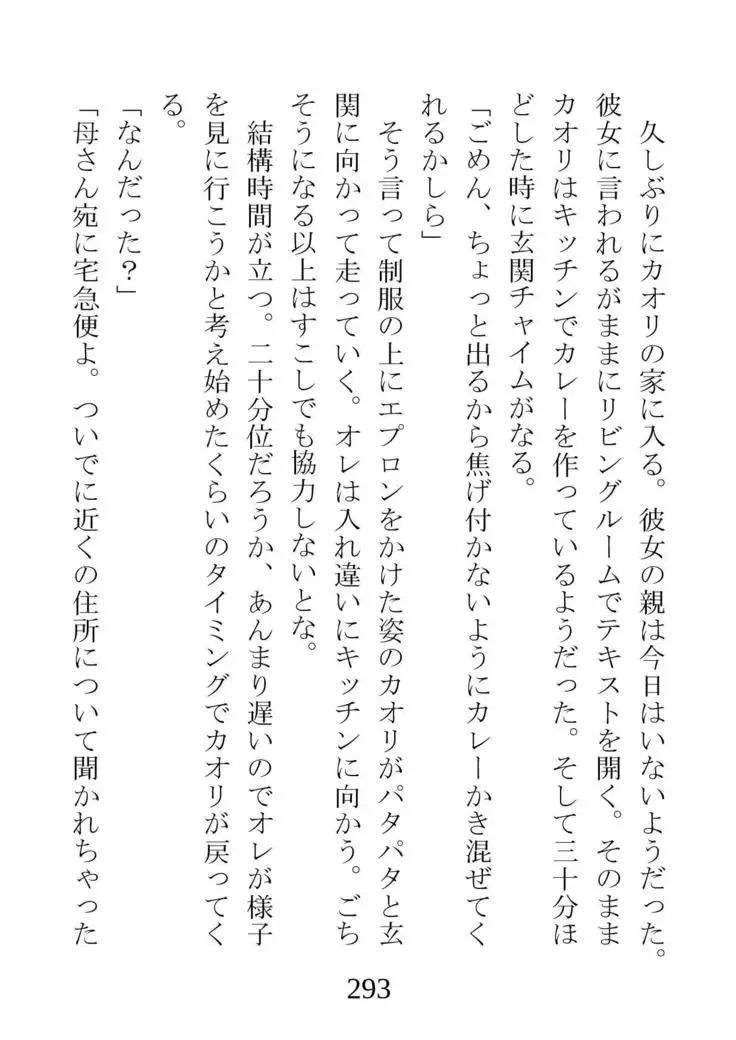 久しぶりにカオリの家に入る。彼女の親は今日はいないようだった。
彼女に言われるがままにリビングルームでテキストを開く。そのまま
カオリはキッチンでカレーを作っているようだった。そして三十分ほ
どした時に玄関チャイムがなる。
「ごめん、ちょっと出るから焦げ付かないようにカレーかき混ぜてく
れるかしら」
そう言って制服の上にエプロンをかけた姿のカオリがパタパタと玄
関に向かって走っていく。オレは入れ違いにキッチンに向かう。ごち
そうになる以上はすこしでも協力しないとな。
結構時間が立つ。二十分位だろうか、あんまり遅いのでオレが様子
を見に行こうかと考え始めたくらいのタイミングでカオリが戻ってく
る。
「なんだった？」
「母さん宛に宅急便よ。ついでに近くの住所について聞かれちゃった
293